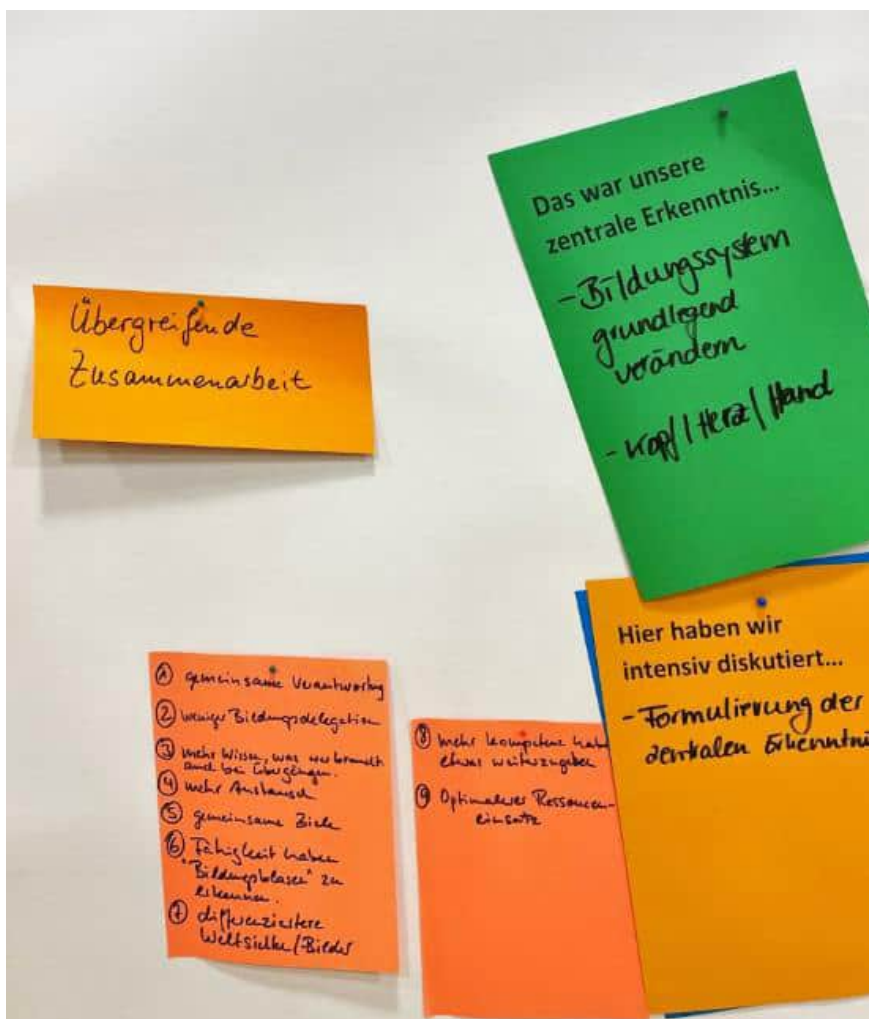 Übergreifende
Zusammenarbeit
Das war unsere
zentrale Erkenntnis...
- Bildungssystem
grundlegend
verändern
- Kopf / Herz / Hand
Hier haben wir
intensiv diskutiert...
- Formulierung der
zentralen Erkenntni
① gemeinsame Verantwortung
② weniger Bildungsdelegation
③ mehr Wissen, was wer braucht
auch bei Übergängen.
④ mehr Austausch
⑤ gemeinsame Ziele
⑥ Fähigkeit haben
"Bildungsblasen" zu
erkennen.
⑦ differenziertere
Weltsichten/Bilder
⑧ mehr Kompetenz
etwas weiterzugeben
⑨ Optimalerer Ressourcen-
einsatz